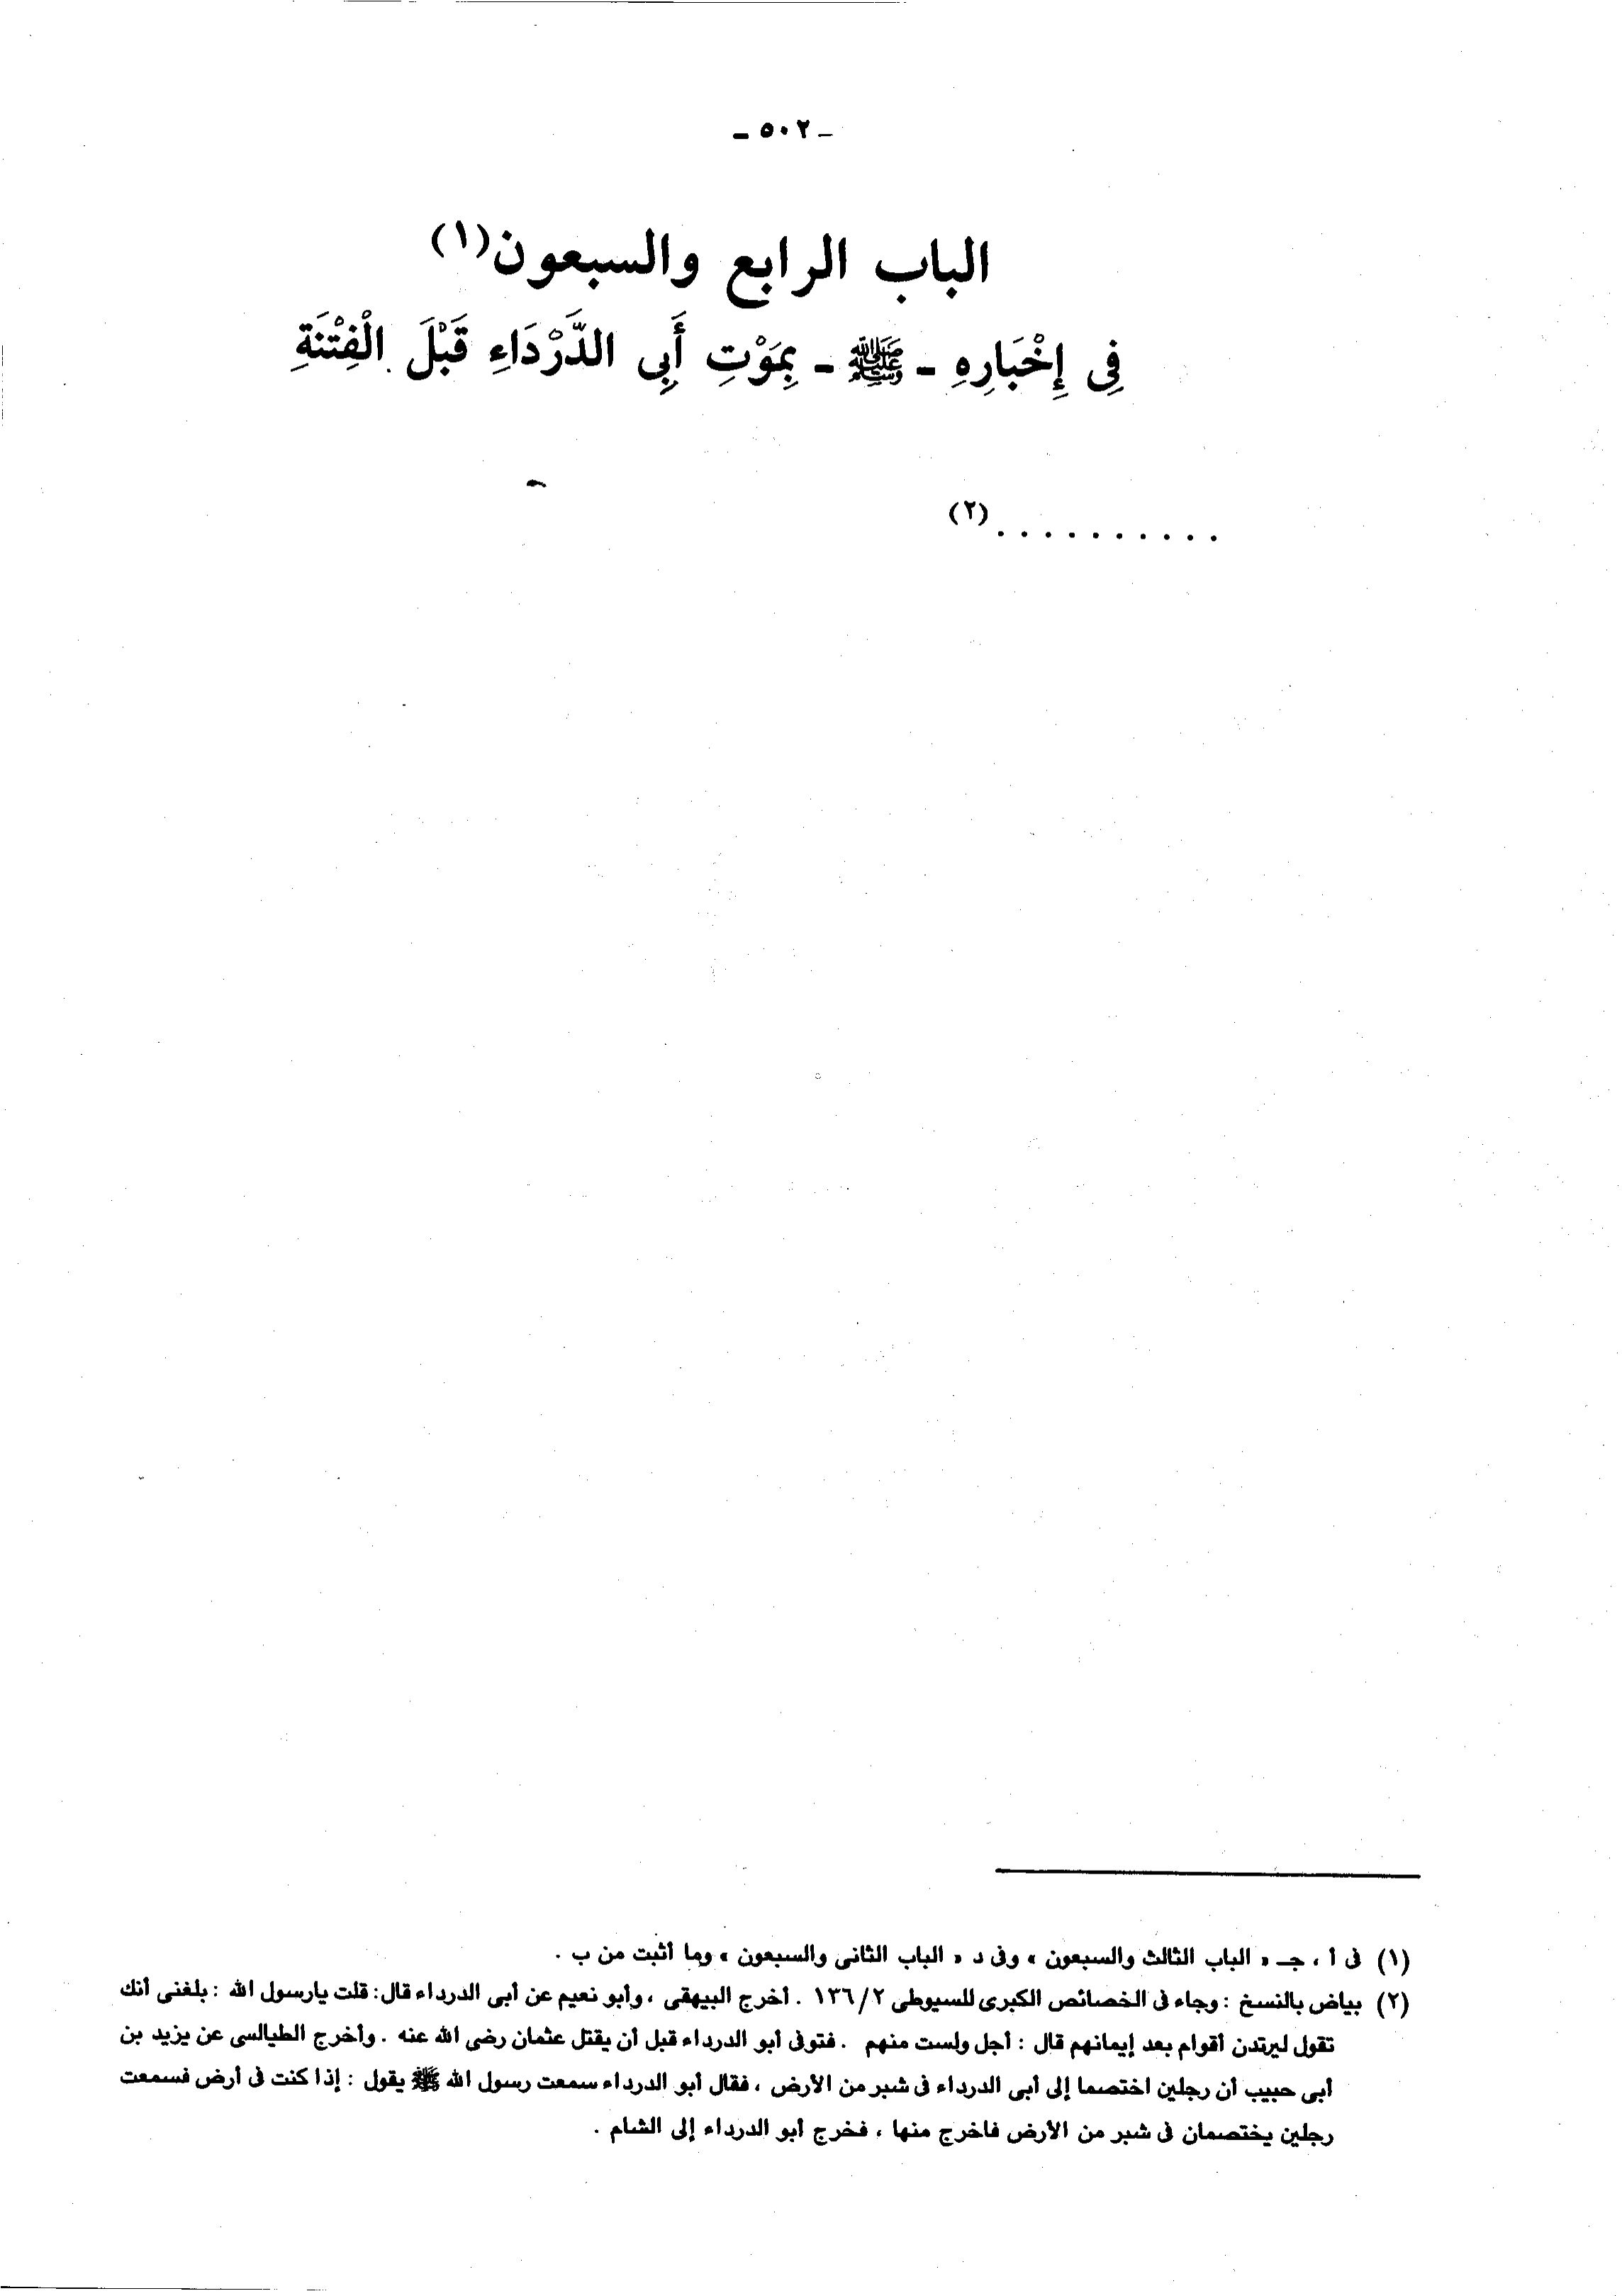 - ٥٠٢ -
الباب الرابع والسبعون(١)
فِى إِخْبَارِهِ - ﷺ - بِمَوْتِ أَبِى الدَّرْدَاءِ قَبْلَ الْفِتْنَةِ
..........(٢)
(١) فى أ ، جـ « الباب الثالث والسبعون » وفى د « الباب الثانى والسبعون » وما أثبت من ب .
(٢) بياض بالنسخ : وجاء فى الخصائص الكبرى للسيوطى ١٣٦/٢ . أخرج البيهقى ، وأبو نعيم عن أبى الدرداء قال: قلت يارسول الله : بلغنى أنك
تقول ليرتدن أقوام بعد إيمانهم قال : أجل ولست منهم . فتوفى أبو الدرداء قبل أن يقتل عثمان رضى الله عنه . وأخرج الطيالسى عن يزيد بن
أبى حبيب أن رجلين اختصما إلى أبى الدرداء فى شبر من الأرض ، فقال أبو الدرداء سمعت رسول الله ﷺ يقول : إذا كنت فى أرض فسمعت
رجلين يختصمان فى شبر من الأرض فاخرج منها ، فخرج أبو الدرداء إلى الشام .